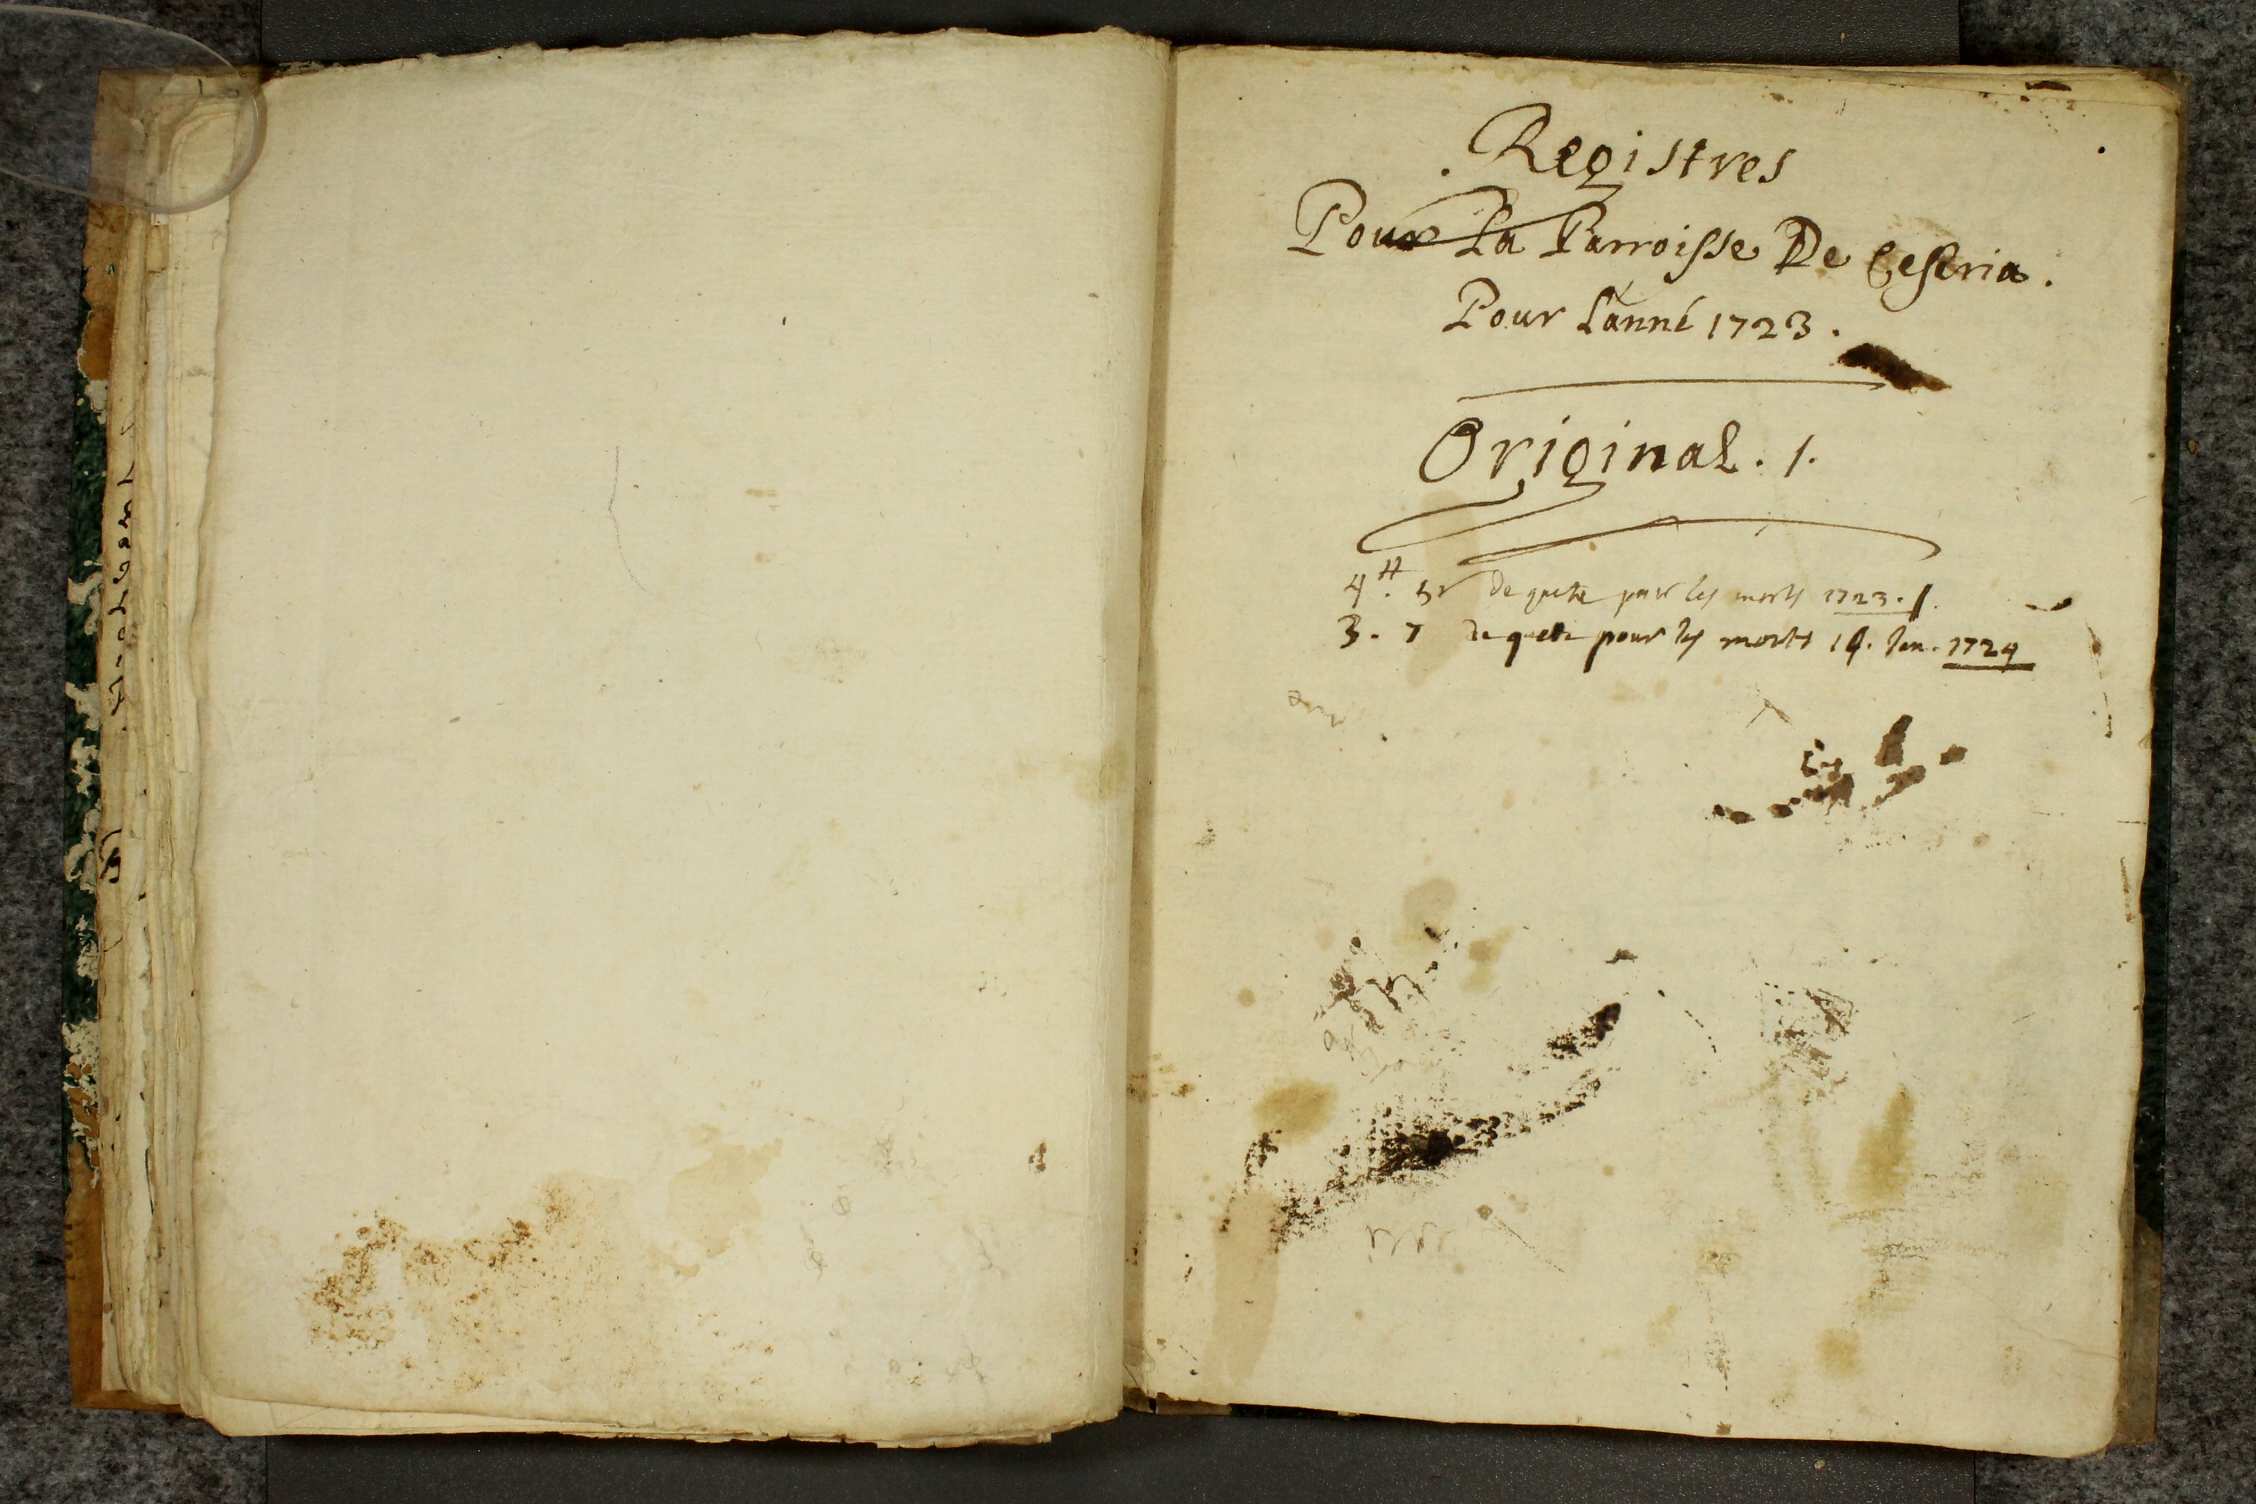 Registres
Pour La Parroisse De Ceseria.
Pour L'anné 1723.
Original. 1.
4 ₶. de quete pour les morts 1723.
3. 7 de quete pour les morts 14. Jan. 1724